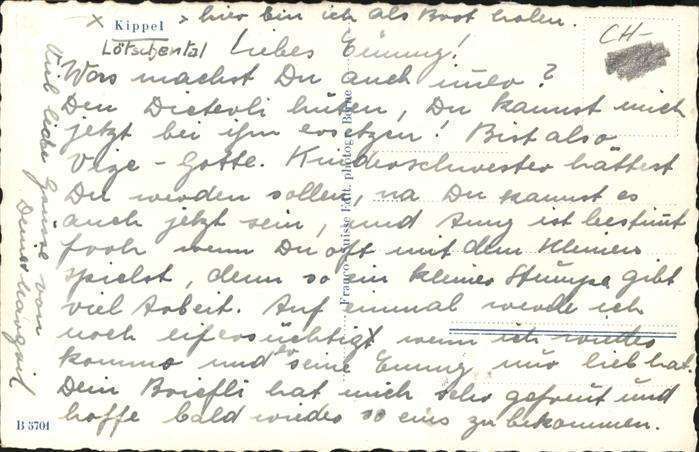 x Kippel > hier bin ich als Brot holen.
Lötschental
CH-
Liebes Emmy!
Was machst Du auch immer?
Den Dieterli hüten, Du kannst mich
jetzt bei ihm ersetzen! Bist also
Vize-Gotte. Kinderschwester hättest
Du werden sollen, na Du kannst es
auch jetzt sein, und Anny ist bestimt
froh wenn Du oft mit dem Kleinen
spielst, denn so ein kleiner Stumpe gibt
viel Arbeit. Auf einmal werde ich
noch eifersüchtig wenn ich wieder
komme und er seine Emmy nur lieb hat.
Dein Briefli hat mich sehr gefreut und
hoffe bald wieder so eins zu bekommen.
Viel liebe Grüsse von
Deiner
Franco-Suisse Edit. photogr. Berne
B 5701